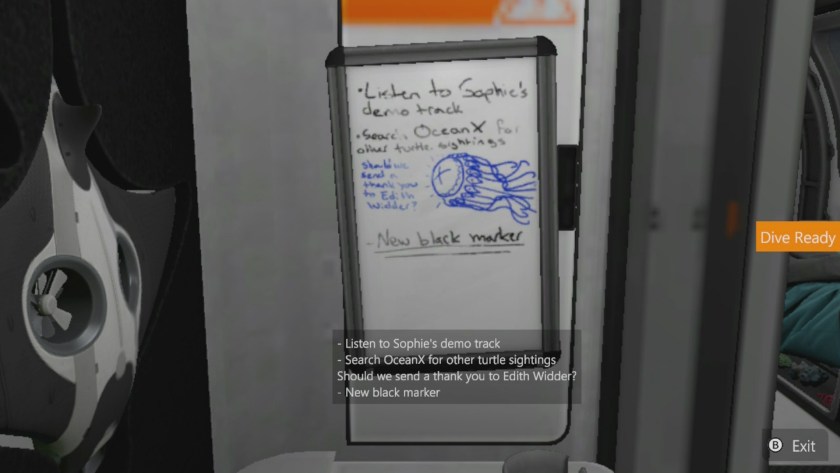 • Listen to Sophie's
demo track
• Search OceanX for
other turtle sightings
should we
send a
thank you
to Edith
Widder?
- New black marker
Dive Ready
- Listen to Sophie's demo track
- Search OceanX for other turtle sightings
Should we send a thank you to Edith Widder?
- New black marker
B Exit